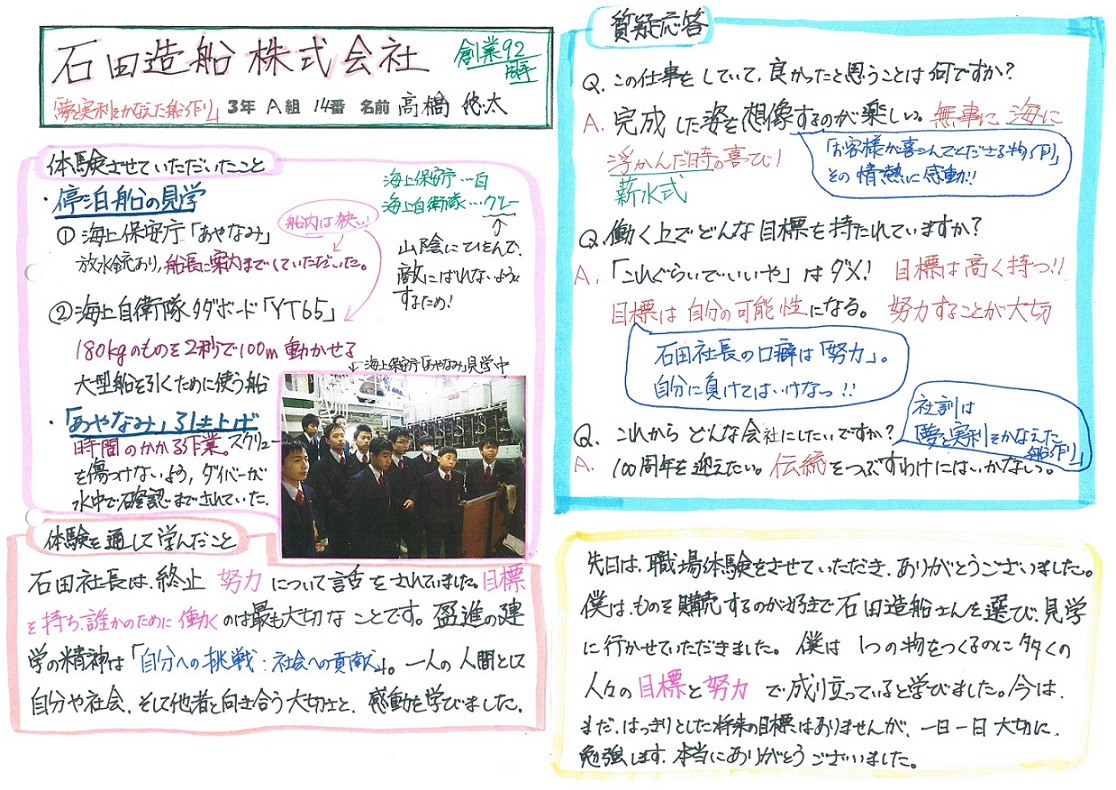 石田造船株式会社
創業92周年
「夢と実利をかなえた船作り」
3年 A組 14番 名前 高橋 悠太
体験させていただいたこと
・停泊船の見学
① 海上保安庁「あやなみ」
放水銃あり、船長に案内までしていただいた。
船内は狭い!!
海上保安庁…白
海上自衛隊…グレー
山陰にひそんで、
敵にばれないように
するため!
② 海上自衛隊タグボード「YT65」
180kgのものを2秒で100m動かせる
大型船を引くために使う船
←海上保安庁「あやなみ」見学中
・「あやなみ」引き上げ
時間のかかる作業。スクリュー
を傷つけないよう、ダイバーが
水中で確認までされていた。
体験を通して学んだこと
石田社長は、終止 努力 について話をされていました。目標
を持ち、誰かのために働くのは最も大切なことです。盈進の建
学の精神は「自分への挑戦:社会への貢献」。一人の人間として
自分や社会、そして他者と向き合う大切さと、感動を学びました。
質疑応答
Q. この仕事をしていて、良かったと思うことは何ですか?
A. 完成した姿を想像するのが楽しい。無事に海に
浮かんだ時の喜び!
薪水式
「お客様が喜こんでくださる物作り」
その情熱に感動!!
Q. 働く上でどんな目標を持たれていますか?
A. 「これぐらいでいいや」はダメ! 目標は高く持つ!!
目標は自分の可能性になる。 努力することが大切
石田社長の口癖は「努力」。
自分に負けてはいけなっ!!
Q. これからどんな会社にしたいですか?
A. 100周年を迎えたい。伝統をつぶすわけにはいかないっ。
社訓は
「夢と実利をかなえた
船作り」
先日は、職場体験をさせていただき、ありがとうございました。
僕は、ものを購売するのが好きで石田造船さんを選び、見学
に行かせていただきました。僕は 1つの物をつくるのに多くの
人々の目標と努力 で成り立っていると学びました。今は、
まだ、はっきりとした将来の目標はありませんが、一日一日 大切に、
勉強します。本当にありがとうございました。